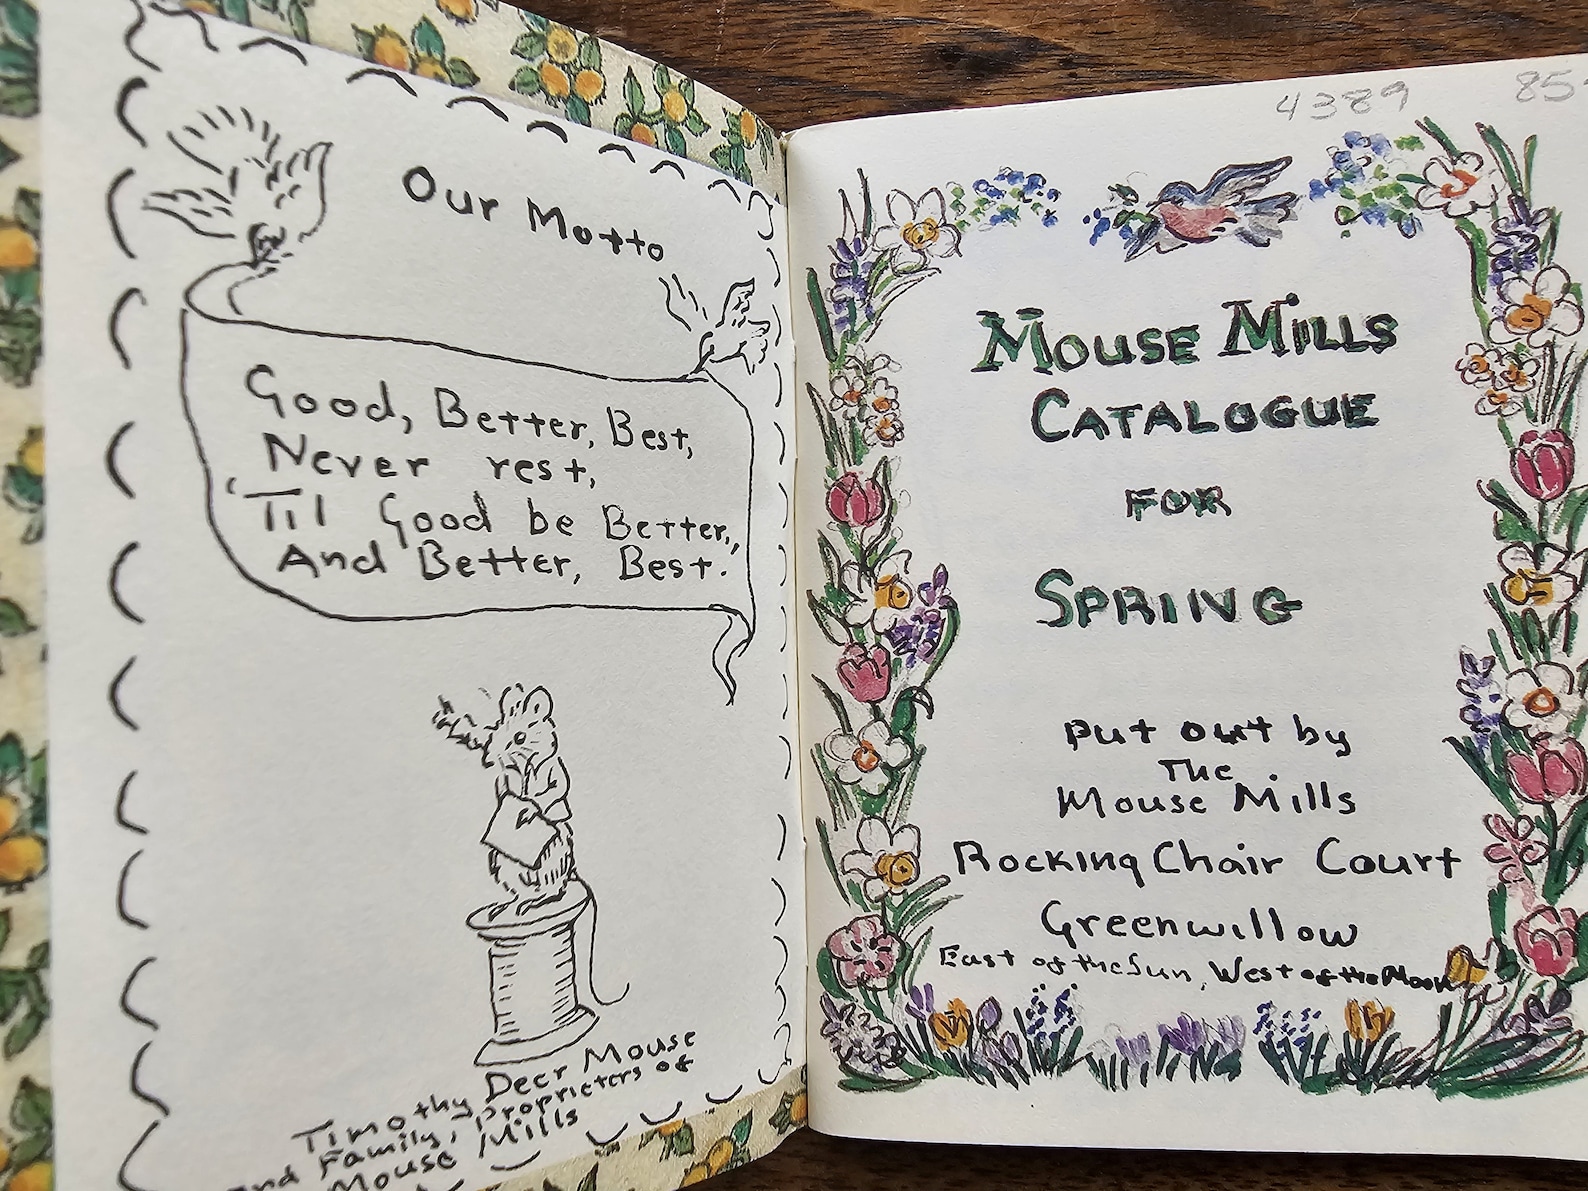 Our Motto
Good, Better, Best,
Never rest,
'Til Good be Better,
And Better, Best.
Timothy Deer Mouse
and Family, Proprieters of
Mouse Mills
4389
85
Mouse Mills
Catalogue
for
Spring
Put out by
The
Mouse Mills
Rocking Chair Court
Greenwillow
East of the Sun, West of the Moon